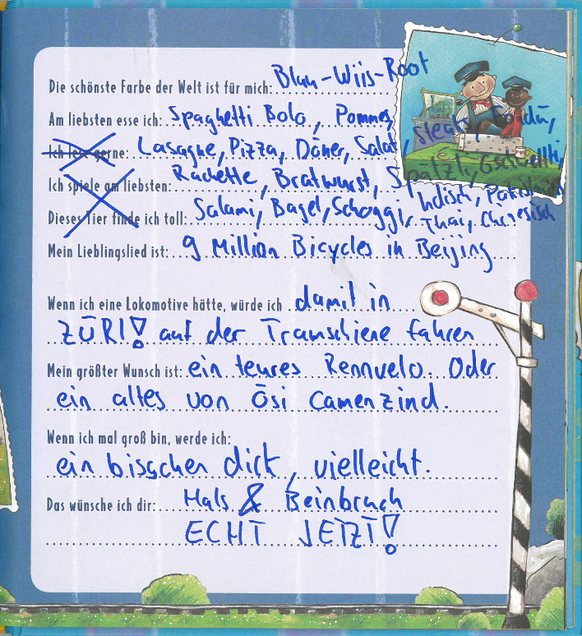 Die schönste Farbe der Welt ist für mich: Blau-Wiis-Root
Am liebsten esse ich: Spaghetti Bolo, Pommes, Steak, Fondü,
Ich lese gerne: Lasagne, Pizza, Döner, Salat, Spätzli, Gschwellti,
Ich spiele am liebsten: Raclette, Bratwurst, Indisch,
Dieses Tier finde ich toll: Salami, Bagel, Schoggi, Thai, Chinesisch
Mein Lieblingslied ist: 9 Million Bicycles in Beijing
Wenn ich eine Lokomotive hätte, würde ich damit in
ZÜRI! auf der Tramschiene fahren
Mein größter Wunsch ist: ein teures Rennvelo. Oder
ein altes von Ösi Camenzind.
Wenn ich mal groß bin, werde ich:
ein bisschen dick, vielleicht.
Das wünsche ich dir: Hals & Beinbruch
ECHT JETZT!